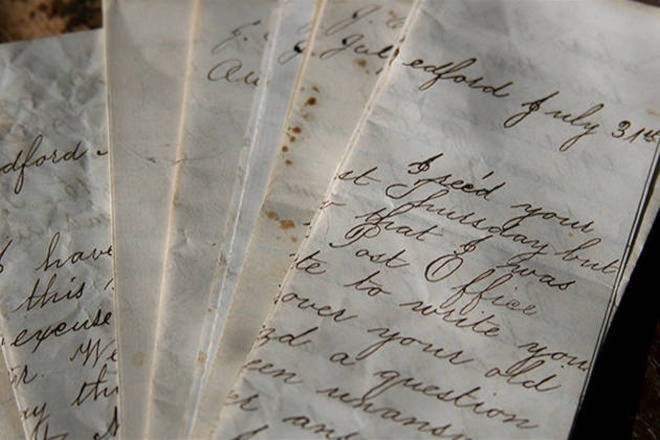 dford
I have
this
excuse
We
Au
Jul
edford July 31st
I rec'd your
st Thursday but
that I was
Post Office
te to write you
over your old
a question
een unansw